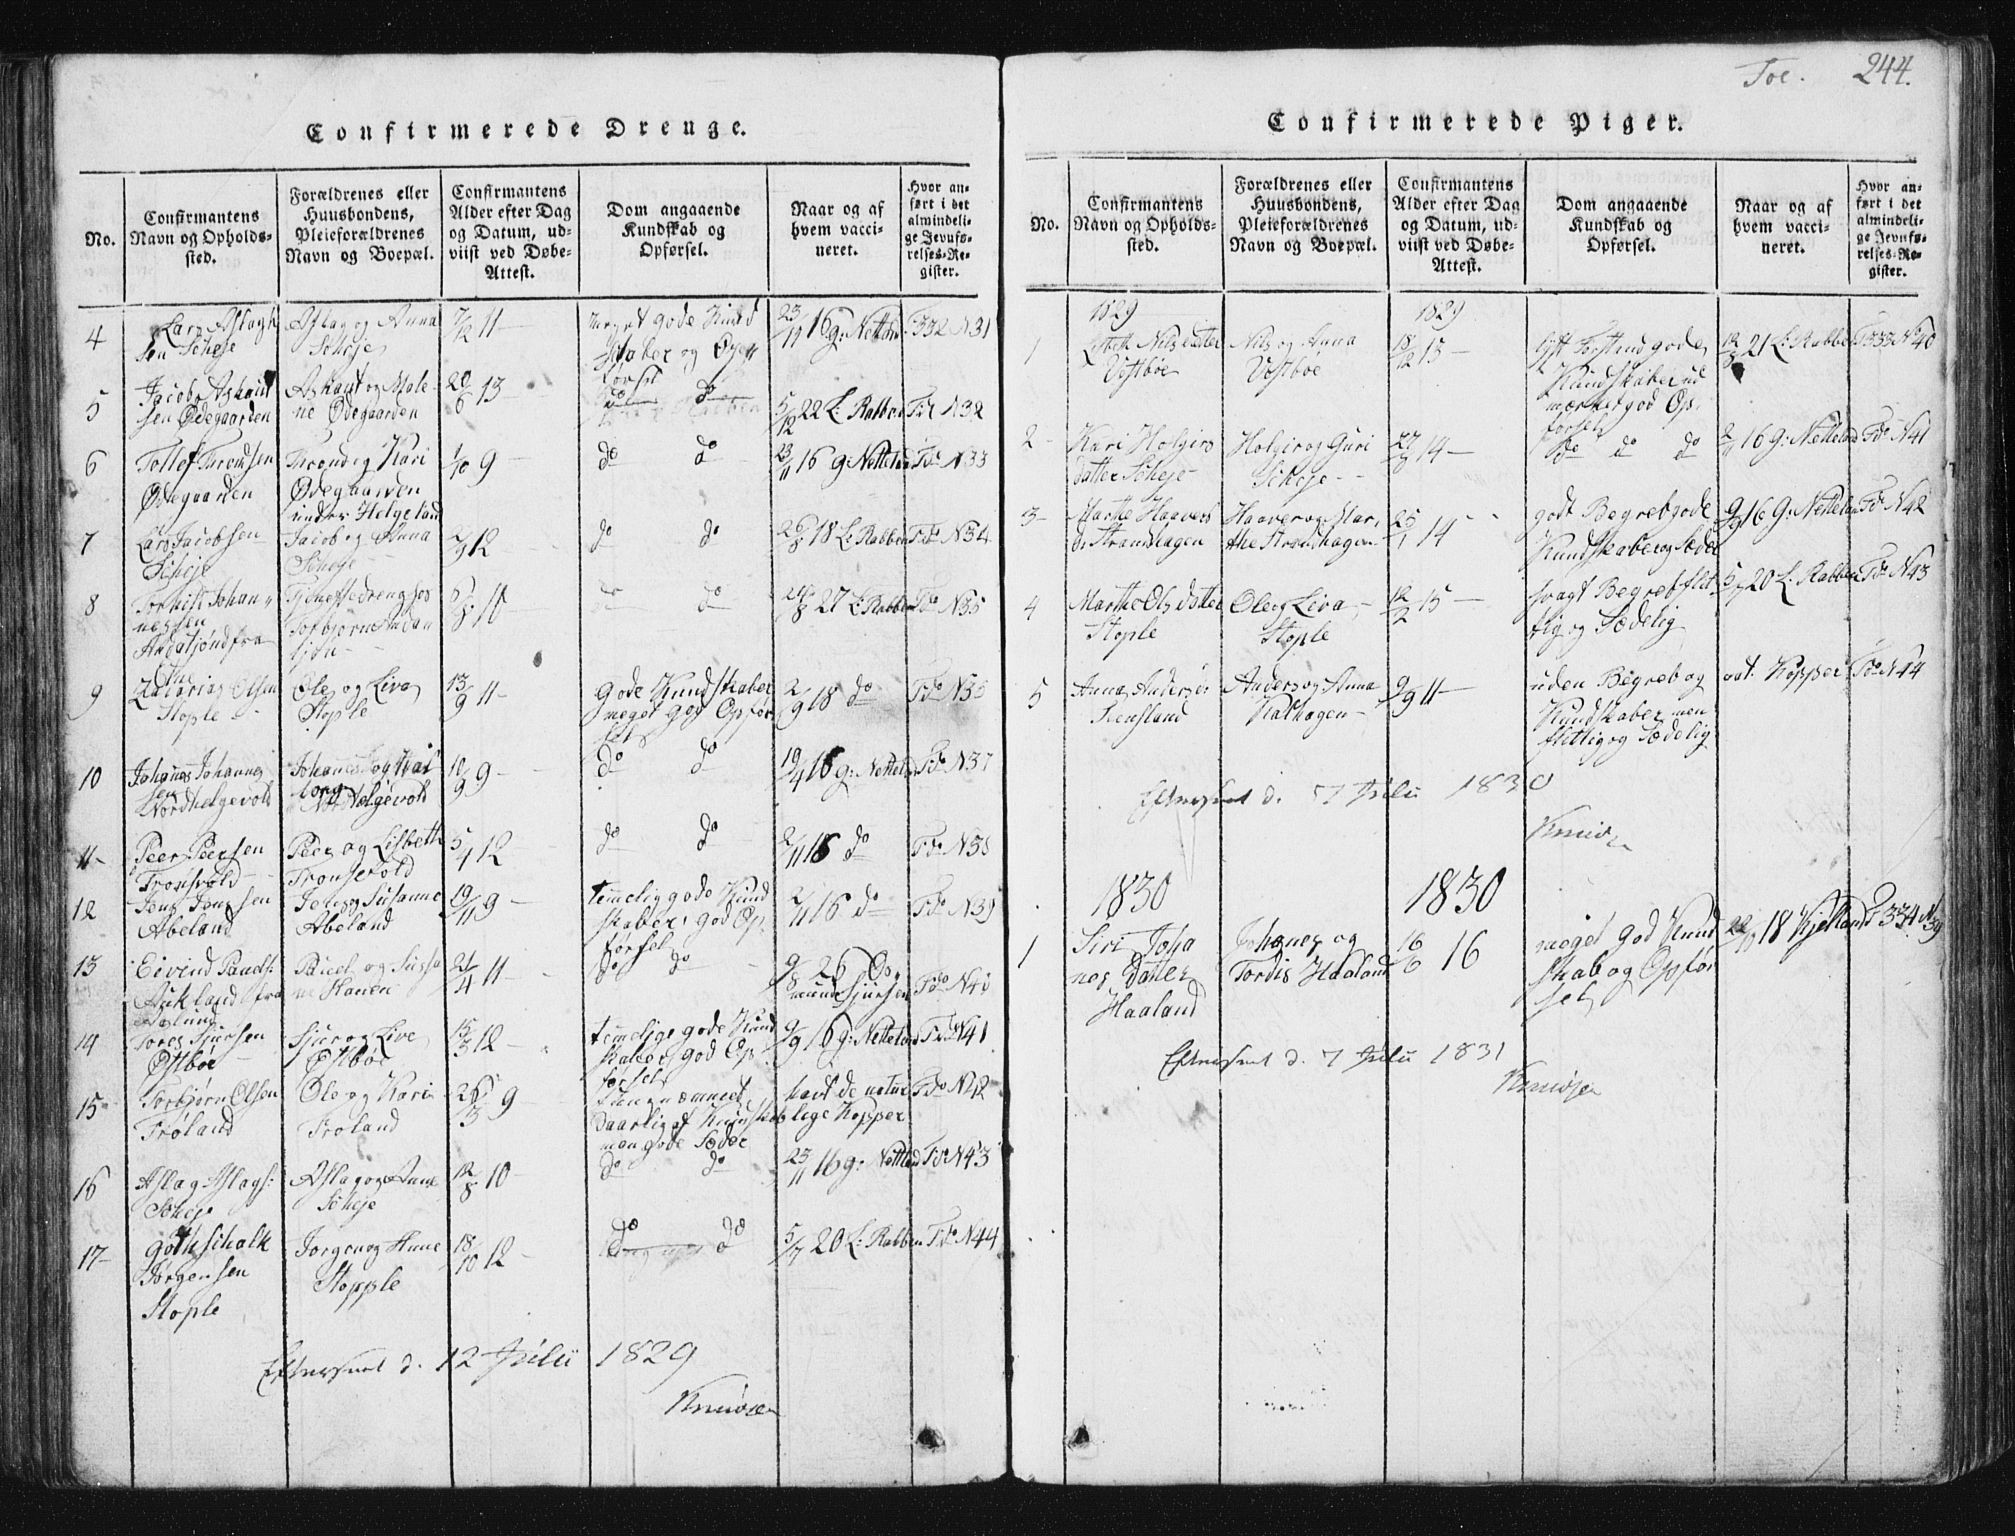 Toe. 244.
Confirmerede Drenge.
No.
Confirmantens Navn og Opholds-sted.
Forældrenes eller Huusbondens, Pleieforældrenes Navn og Boepæl.
Confirmantens Alder efter Dag og Datum, ud-viist ved Døbe-Attest.
Dom angaaende Kundskab og Opførsel.
Naar og af hvem vacci-neret.
Hvor an-ført i det almindeli-ge Jevnfø-relses-Re-gister.
4 Lars Aslagh sen Scheje Aslag og Anna Scheje 7/12 11 meget gode Kund skaber og Opf førsel 23/11 16 g: Nettelan F 332 N31
5 Jacob Askout sen Ødegaarden og Male ne Ødegaarden 20/6 13 do do 5/12 22 L: Rabben Fdo N32
6 Tollef Trondsen Ødegaarden Trond og Kari Ødegaarden under Helgeland 1/10 9 do do 23/11 16 g: Netteland Fdo N33
7 Lars Jacobsen Scheje Jacob og Anna Scheje 2/9 12 do do 26/8 18 L: Rabben Fdo N34
8 Johan nessen Tjenestedreng hos Torbjørn 6/8 10 do do 27 L: Rabben Fdo N35
9 Zacarias Olsen Stople Ole og Liva Stople 13/9 11 gode Kundskaber meget god Opfør sel 2/9 18 do Fdo N36
10 Johanes Johannes sen Nordhelgevold Johanes og Wal borg Nordhelgevold 10/9 9 do do 19/4 16 g: Netteland Fdo N37
11 Peer Peersen Tronsvold Peer og Lisbeth Tronsevold 5/4 12 do do 2/11 16 do Fdo N38
12 Jens Jensen Abeland Jens og Susanne Abeland 19/11 9 temelig gode Kund skaber, god Op førsel 2/11 16 do Fdo N39
13 Eivind Paaels: Aukland fra Paael og Susa ne 21/4 11 do do 9/8 26 Os mund Sjursen Fdo N40
14 Tores Sjursen Østbøe Sjur og Live Østbøe 15/3 12 temelige gode Kund skaber, god Op førsel 9/9 16 g: Netteland Fdo N41
15 Torbjørn Olsen Trøland Ole og Kari Trøland 26/3 9 daarligt Kundskab men gode Sæder havt de natur lige Kopper Fdo N42
16 Aslag Aslags: Scheje Aslag og Anne Scheje 12/8 10 do do 23/11 16 g: Nettland Fdo N43
17 Gothschalk Jørgensen Stople Jørgen og Anne Stopple 18/10 12 do do 5/7 20 L: Rabben Fdo N44
Efterseet d. 12 Julii 1829
Knudsen
Confirmerede Piger.
No.
Confirmantens Navn og Opholds-sted.
Forældrenes eller Huusbondens, Pleieforældrenes Navn og Boepæl.
Confirmantens Alder efter Dag og Datum, ud-viist ved Døbe-Attest.
Dom angaaende Kundskab og Opførsel.
Naar og af hvem vacci-neret.
Hvor an-ført i det almindeli-ge Jevnfø-relses-Re-gister.
1829 1829
1 Nilsdatter Vestbøe Nils og Anna Vestbøe 18/12 15 Forstand gode Kundskaber ud mærket god Op førsel 21 L: Rabben F 333 N40
2 Kari Holgers datter Scheje Holger og Guri Scheje 14 do do do 2/11 16 g: Netteland Fdo N41
3 Marthe Haavers d: Strandhagen Haaver og Mar the Strandhagen 25/1 14 godt Begreb gode Kundskaber og Sæder 9/9 16 G: Netteland Fdo N42
4 Marthe Olsdatter Stople Ole og Liva Stople 12/2 15 svagt Begreb flit tig og Sædelig 5/7 20 L: Rabben Fdo N43
5 Anna Andersd: Anders og Anna 9/9 11 uden Begreb og Kundskaber men flittig og Sædelig nat. Kopper Fdo N44
Efterseet d. 7 Julii 1830
Knudsen
1830 1830
1 Siri Joha nes datter Haaland Johanes og Tordis Haaland 16/6 16 meget god Kund skab og Opfør sel 22/11 18 Kjelland F 334 N39
Efterseet d. 7 Julii 1831
Knudsen